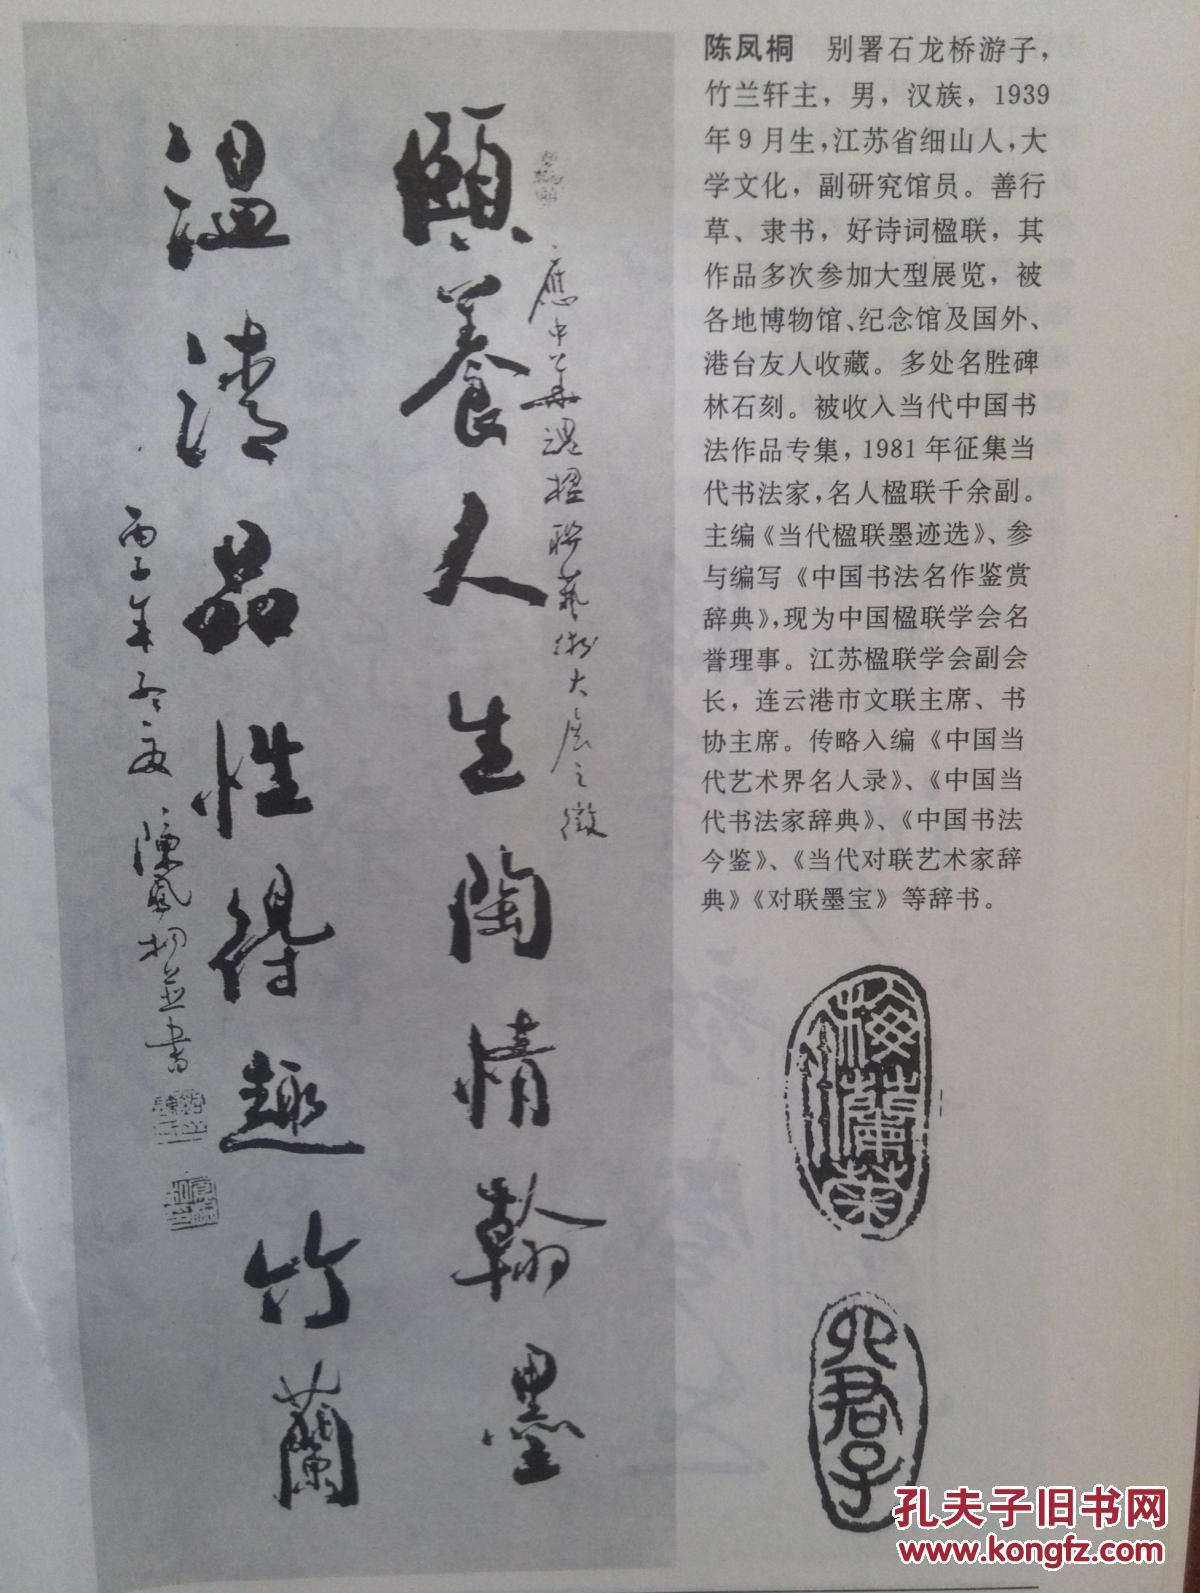 陈凤桐 别署石龙桥游子，
竹兰轩主，男，汉族，1939
年9月生，江苏省细山人，大
学文化，副研究馆员。善行
草、隶书，好诗词楹联，其
作品多次参加大型展览，被
各地博物馆、纪念馆及国外、
港台友人收藏。多处名胜碑
林石刻。被收入当代中国书
法作品专集，1981年征集当
代书法家，名人楹联千余副。
主编《当代楹联墨迹选》、参
与编写《中国书法名作鉴赏
辞典》，现为中国楹联学会名
誉理事。江苏楹联学会副会
长，连云港市文联主席、书
协主席。传略入编《中国当
代艺术界名人录》、《中国当
代书法家辞典》、《中国书法
今鉴》、《当代对联艺术家辞
典》《对联墨宝》等辞书。
應中華魂楹聯藝術大展之徵
頤養人生陶情翰墨
溫清品性得趣竹蘭
丙子年冬月 陳鳳桐並書
梅蘭菊
君子
孔夫子旧书网
www.kongfz.com